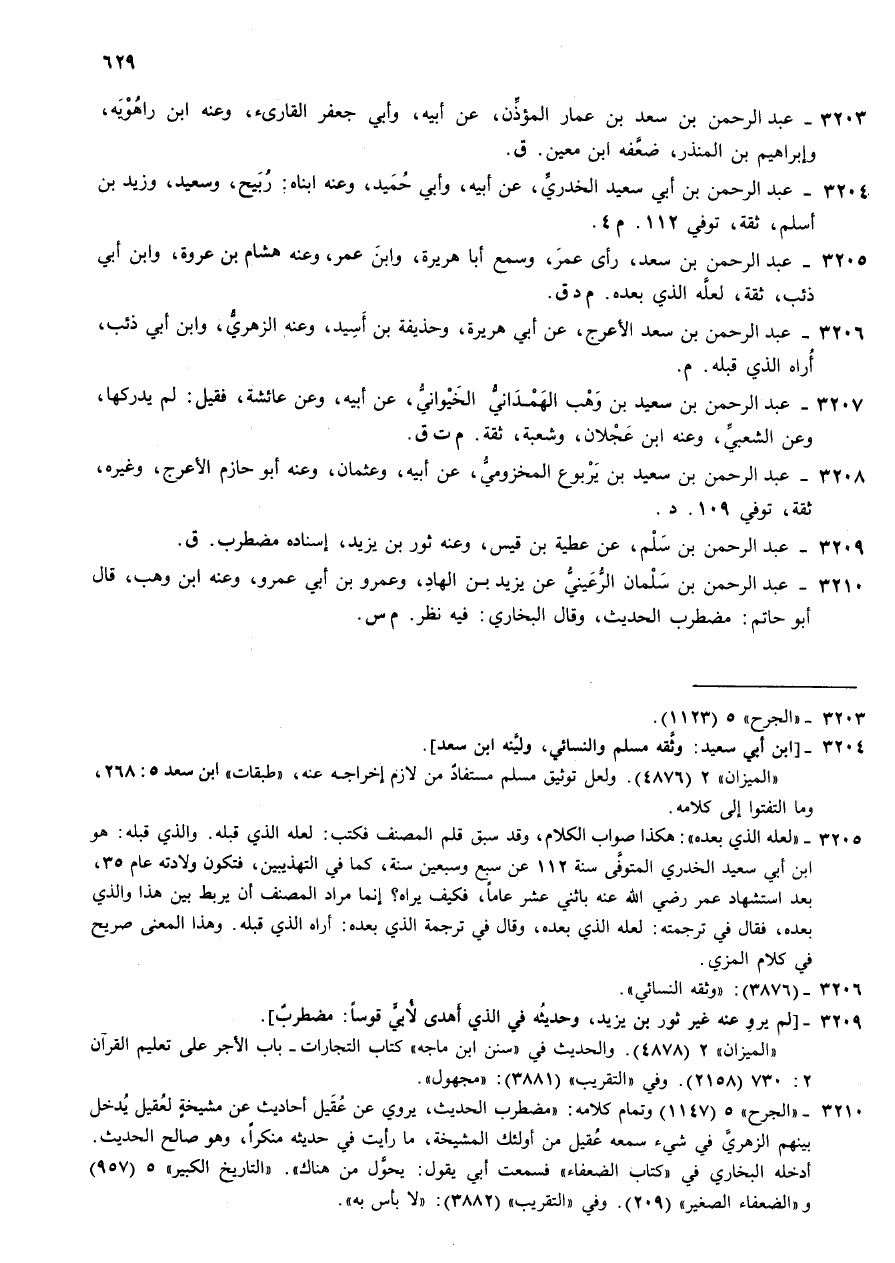 ٦٢٩
٣٢٠٣ ـ عبد الرحمن بن سعد بن عمار المؤذِّن، عن أبيه، وأبي جعفر القارىء، وعنه ابن راهُوْيَه،
وإبراهيم بن المنذر، ضعَّفه ابن معين. ق.
٣٢٠٤ ـ عبد الرحمن بن أبي سعيد الخدريِّ، عن أبيه، وأبي حُمَيد، وعنه ابناه: رُبَيح، وسعيد، وزيد بن
أسلم، ثقة، توفي ١١٢. م ٤.
٣٢٠٥ ـ عبد الرحمن بن سعد، رأى عمرَ، وسمع أبا هريرة، وابنَ عمر، وعنه هشام بن عروة، وابن أبي
ذئب، ثقة، لعلَّه الذي بعده. م د ق.
٣٢٠٦ ـ عبد الرحمن بن سعد الأعرج، عن أبي هريرة، وحذيفة بن أَسِيد، وعنه الزهريُّ، وابن أبي ذئب،
أُراه الذي قبله. م.
٣٢٠٧ ـ عبد الرحمن بن سعيد بن وَهْب الهَمْدَانيُّ الخَيْوانيُّ، عن أبيه، وعن عائشة، فقيل: لم يدركها،
وعن الشعبيِّ، وعنه ابن عَجْلان، وشعبة، ثقة. م ت ق.
٣٢٠٨ ـ عبد الرحمن بن سعيد بن يَرْبوع المخزوميُّ، عن أبيه، وعثمان، وعنه أبو حازم الأعرج، وغيره،
ثقة، توفي ١٠٩. د .
٣٢٠٩ ـ عبد الرحمن بن سَلْم، عن عطية بن قيس، وعنه ثور بن يزيد، إسناده مضطرب. ق.
٣٢١٠ ـ عبد الرحمن بن سَلْمان الرُّعَينيُّ عن يزيد بن الهادِ، وعمرو بن أبي عمرو، وعنه ابن وهب، قال
أبو حاتم: مضطرب الحديث، وقال البخاري: فيه نظر. م س.
٣٢٠٣ ـ «الجرح» ٥ (١١٢٣).
٣٢٠٤ ـ [ابن أبي سعيد: وثَّقه مسلم والنسائي، وليَّنه ابن سعد].
«الميزان» ٢ (٤٨٧٦). ولعل توثيق مسلم مستفادٌ من لازم إخراجه عنه، «طبقات» ابن سعد ٥: ٢٦٨،
وما التفتوا إلى كلامه.
٣٢٠٥ ـ «لعله الذي بعده»: هكذا صواب الكلام، وقد سبق قلم المصنف فكتب: لعله الذي قبله. والذي قبله: هو
ابن أبي سعيد الخدري المتوفَّى سنة ١١٢ عن سبع وسبعين سنة، كما في التهذيبين، فتكون ولادته عام ٣٥،
بعد استشهاد عمر رضي الله عنه باثني عشر عاماً، فكيف يراه؟ إنما مراد المصنف أن يربط بين هذا والذي
بعده، فقال في ترجمته: لعله الذي بعده، وقال في ترجمة الذي بعده: أراه الذي قبله. وهذا المعنى صريح
في كلام المزي.
٣٢٠٦ ـ (٣٨٧٦): «وثقه النسائي».
٣٢٠٩ ـ [لم يروِ عنه غير ثور بن يزيد، وحديثُه في الذي أَهدى لأُبيٍّ قوساً: مضطربٌ].
«الميزان» ٢ (٤٨٧٨). والحديث في «سنن ابن ماجه» كتاب التجارات ـ باب الأجر على تعليم القرآن
٢ : ٧٣٠ (٢١٥٨). وفي «التقريب» (٣٨٨١): «مجهول».
٣٢١٠ ـ «الجرح» ٥ (١١٤٧) وتمام كلامه: «مضطرب الحديث، يروي عن عُقَيل أحاديث عن مشيخةٍ لعُقيل يُدخل
بينهم الزهريَّ في شيء سمعه عُقيل من أولئك المشيخة، ما رأيت في حديثه منكراً، وهو صالح الحديث.
أدخله البخاري في «كتاب الضعفاء» فسمعت أبي يقول: يحوَّل من هناك». «التاريخ الكبير» ٥ (٩٥٧)
و «الضعفاء الصغير» (٢٠٩). وفي «التقريب» (٣٨٨٢): «لا بأس به».